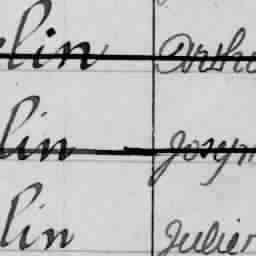 lin Arthu
lin Joseph
lin Julien